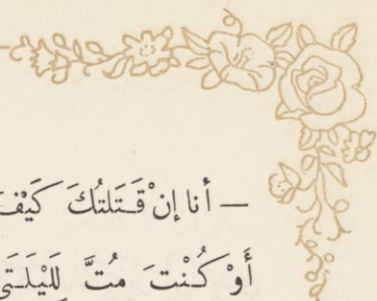 — أنا إنْ قَتَلتُكَ كَيْفَ
أَوْ كُنْتَ مُتَّ لِلَيلَتَي